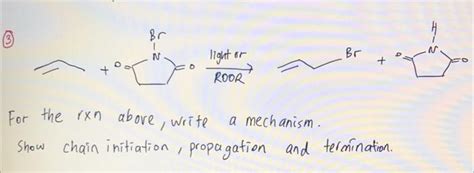 ③
Br
N
O
O
+
light or
ROOR
Br
+
H
N
O
O
For the rxn above, write a mechanism.
Show chain initiation, propagation and termination.